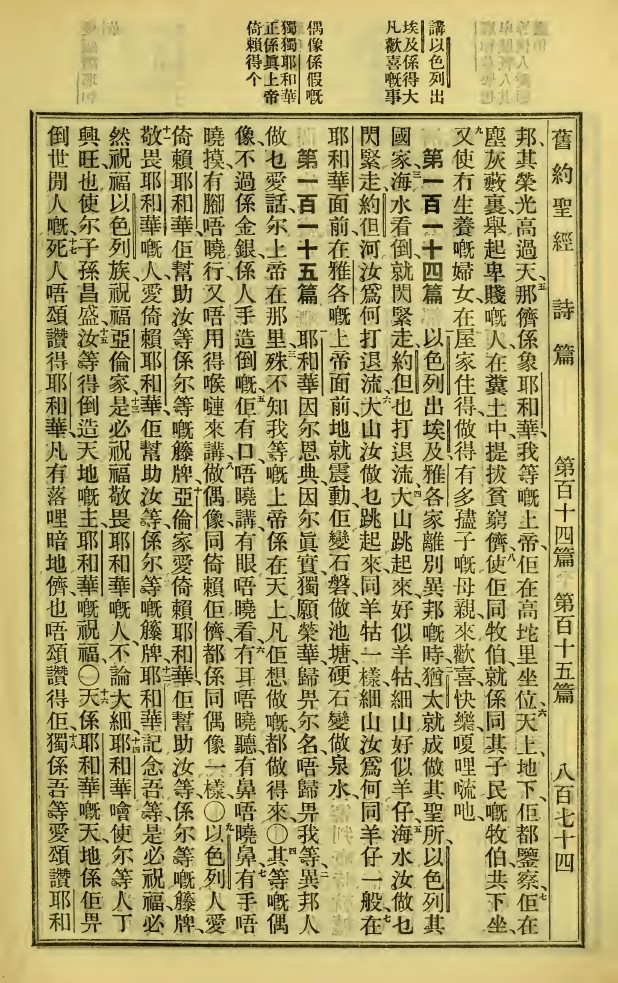 講以色列出
埃及係得大
凡歡喜嘅事
偶像係假嘅
獨獨耶和華
正係眞上帝
倚賴得个
舊約聖經 詩篇 第百十四篇 第百十五篇 八百七十四
邦、其榮光高過天、五那儕係象耶和華我等嘅上帝、佢在高垞里坐位、六天上、地下、佢都鑒察、七佢在
塵灰藪裏舉起卑賤嘅人、在糞土中提拔貧窮儕、八使佢同牧伯、就係同其子民嘅牧伯、共下坐、
九又使冇生養嘅婦女、在屋家住得、做得有多孻子嘅母親來歡喜快樂、嗄哩嚧吔、
第一百一十四篇 以色列出埃及、雅各家離別異邦嘅時、二猶太就成做其聖所、以色列其
國家、三海水看倒就閃緊走、約但也打退流、四大山跳起來、好似羊牯、細山好似羊仔、五海水汝做乜
閃緊走、約但河汝爲何打退流、六大山汝做乜跳起來、同羊牯一樣、細山汝爲何同羊仔一般、七在
耶和華面前、在雅各嘅上帝面前、地就震動、八佢變石磐做池塘、硬石變做泉水、
第一百一十五篇 一耶和華因尔恩典、因尔眞實、獨願榮華歸畀尔名、唔歸畀我等、二異邦人
做乜愛話、尔上帝在那里、三殊不知我等嘅上帝、係在天上、凡佢想做嘅、都做得來、〇四其等嘅偶
像、不過係金銀、係人手造倒嘅、五佢有口唔曉講、有眼唔曉看、六有耳唔曉聽、有鼻唔曉鼻、七有手唔
曉摸、有腳唔曉行、又唔用得喉嗹來講、八做偶像同倚賴佢儕、都係同偶像一樣、〇九以色列人愛
倚賴耶和華、佢幫助汝等、係尔等嘅籐牌、十亞倫家愛倚賴耶和華、佢幫助汝等、係尔等嘅籐牌、
十一敬畏耶和華嘅人、愛倚賴耶和華、佢幫助汝等、係尔等嘅籐牌、十二耶和華記念吾等、是必祝福、必
然祝福以色列族、祝福亞倫家、十三是必祝福敬畏耶和華嘅人、不論大細、十四耶和華噲使尔等人丁
興旺、也使尔子孫昌盛、十五汝等得倒造天地嘅主、耶和華嘅祝福、〇十六天係耶和華嘅天、地係佢畀
倒世閒人嘅、十七死人唔頌讚得耶和華、凡有落哩暗地儕、也唔頌讚得佢、十八獨係吾等愛頌讚耶和